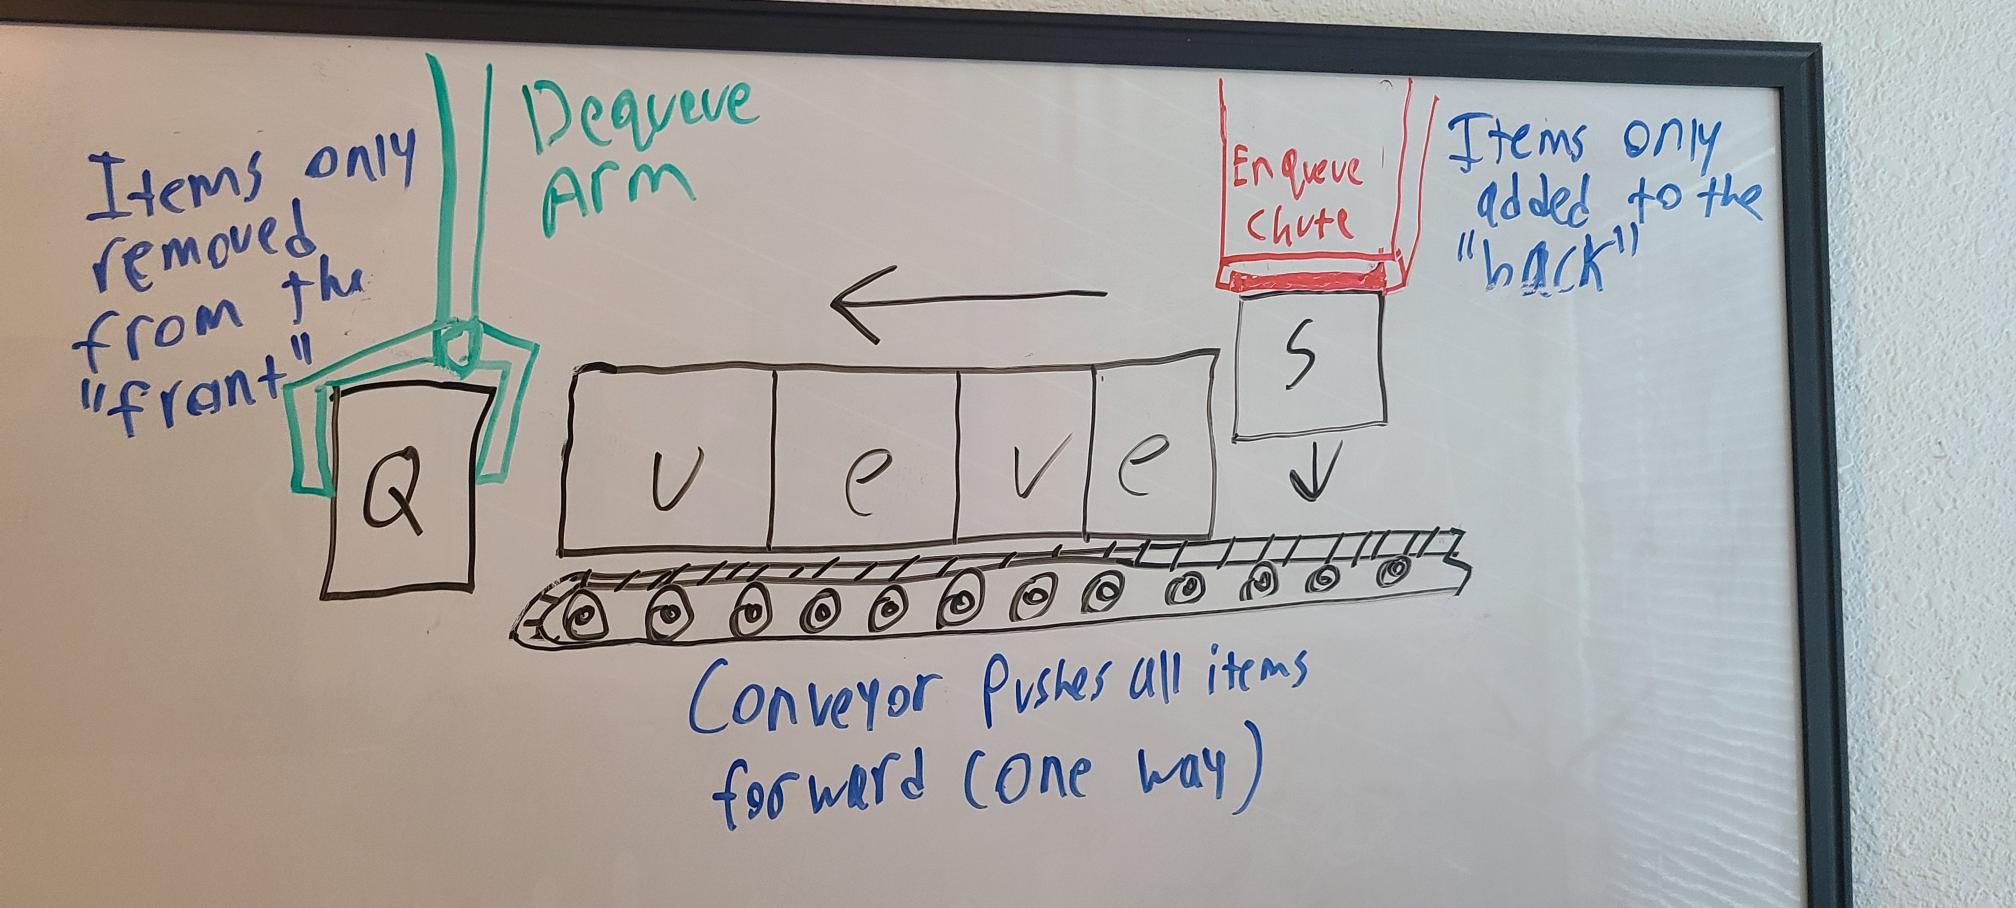 Items only
removed
from the
"front"
Dequeue
Arm
Enqueue
Chute
Items only
added to the
"back"
Q
u
e
u
e
S
Conveyor Pushes all items
forward (one way)